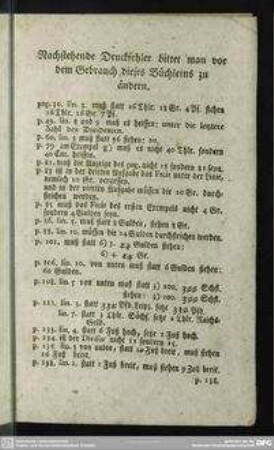 Nachstehende Druckfehler bittet man vor
dem Gebrauch dieses Büchleins zu
ändern.
pag. 30. lin. 2. muß statt 16 Thlr. 12 Gr. 4 Pf. stehen
16 Thlr. 16 Gr. 7 Pf.
p. 49. lin. 8 und 9 muß es heissen: unter die letztere
Zahl den Dividenten.
p. 60. lin. 3 muß statt 56 stehen:
p. 79 am Exempel muß es nicht 40 Thlr. sondern
40 Em. heissen.
p. 81. muß die Anzeige des pag. nicht 18 sondern 81 seyn.
p. 83 ist in der dritten Aufgabe das Facit unter der Linie,
nemlich 10 Gr. vergessen,
und in der vierten Aufgabe müssen die 10 Gr. durch-
strichen werden.
p. 85 muß das Facit des ersten Exempels nicht 4 Gr.
sondern 4 Gulden seyn.
lin. 5. muß statt 2 Gulden, stehen 2 Gr.
p. 88. lin. 10. müssen die 24 Gulden durchstrichen werden.
p. 101. muß statt 6) 7. 24 Gulden stehen:
6) 4. 24 Gr.
p. 106. lin. 10. von unten muß statt 6 Gulden stehen:
60 Gulden.
p. 108. lin. 5 von unten muß statt 3) 100. 390 Schfl.
stehen: 3) 100. 390 Schfl.
p. 122. lin. 3. statt 332 Pfd. Leipz. setze 332 Pfd.
lin. 7. statt 3 Thlr. Sächs. setze 2 Thlr. Reichs-
Geld.
p. 133. lin. 4. statt 6 Fuß hoch, setze 1 Fuß hoch.
p. 134. ist der Divisor nicht 12 sondern 15.
p. 135. lin. 5 von unten, statt 10 Fuß breit, muß stehen
16 Fuß breit.
p. 138. lin. 2. statt 1 Fuß breit, muß stehen 9 Zoll breit.
p. 138.